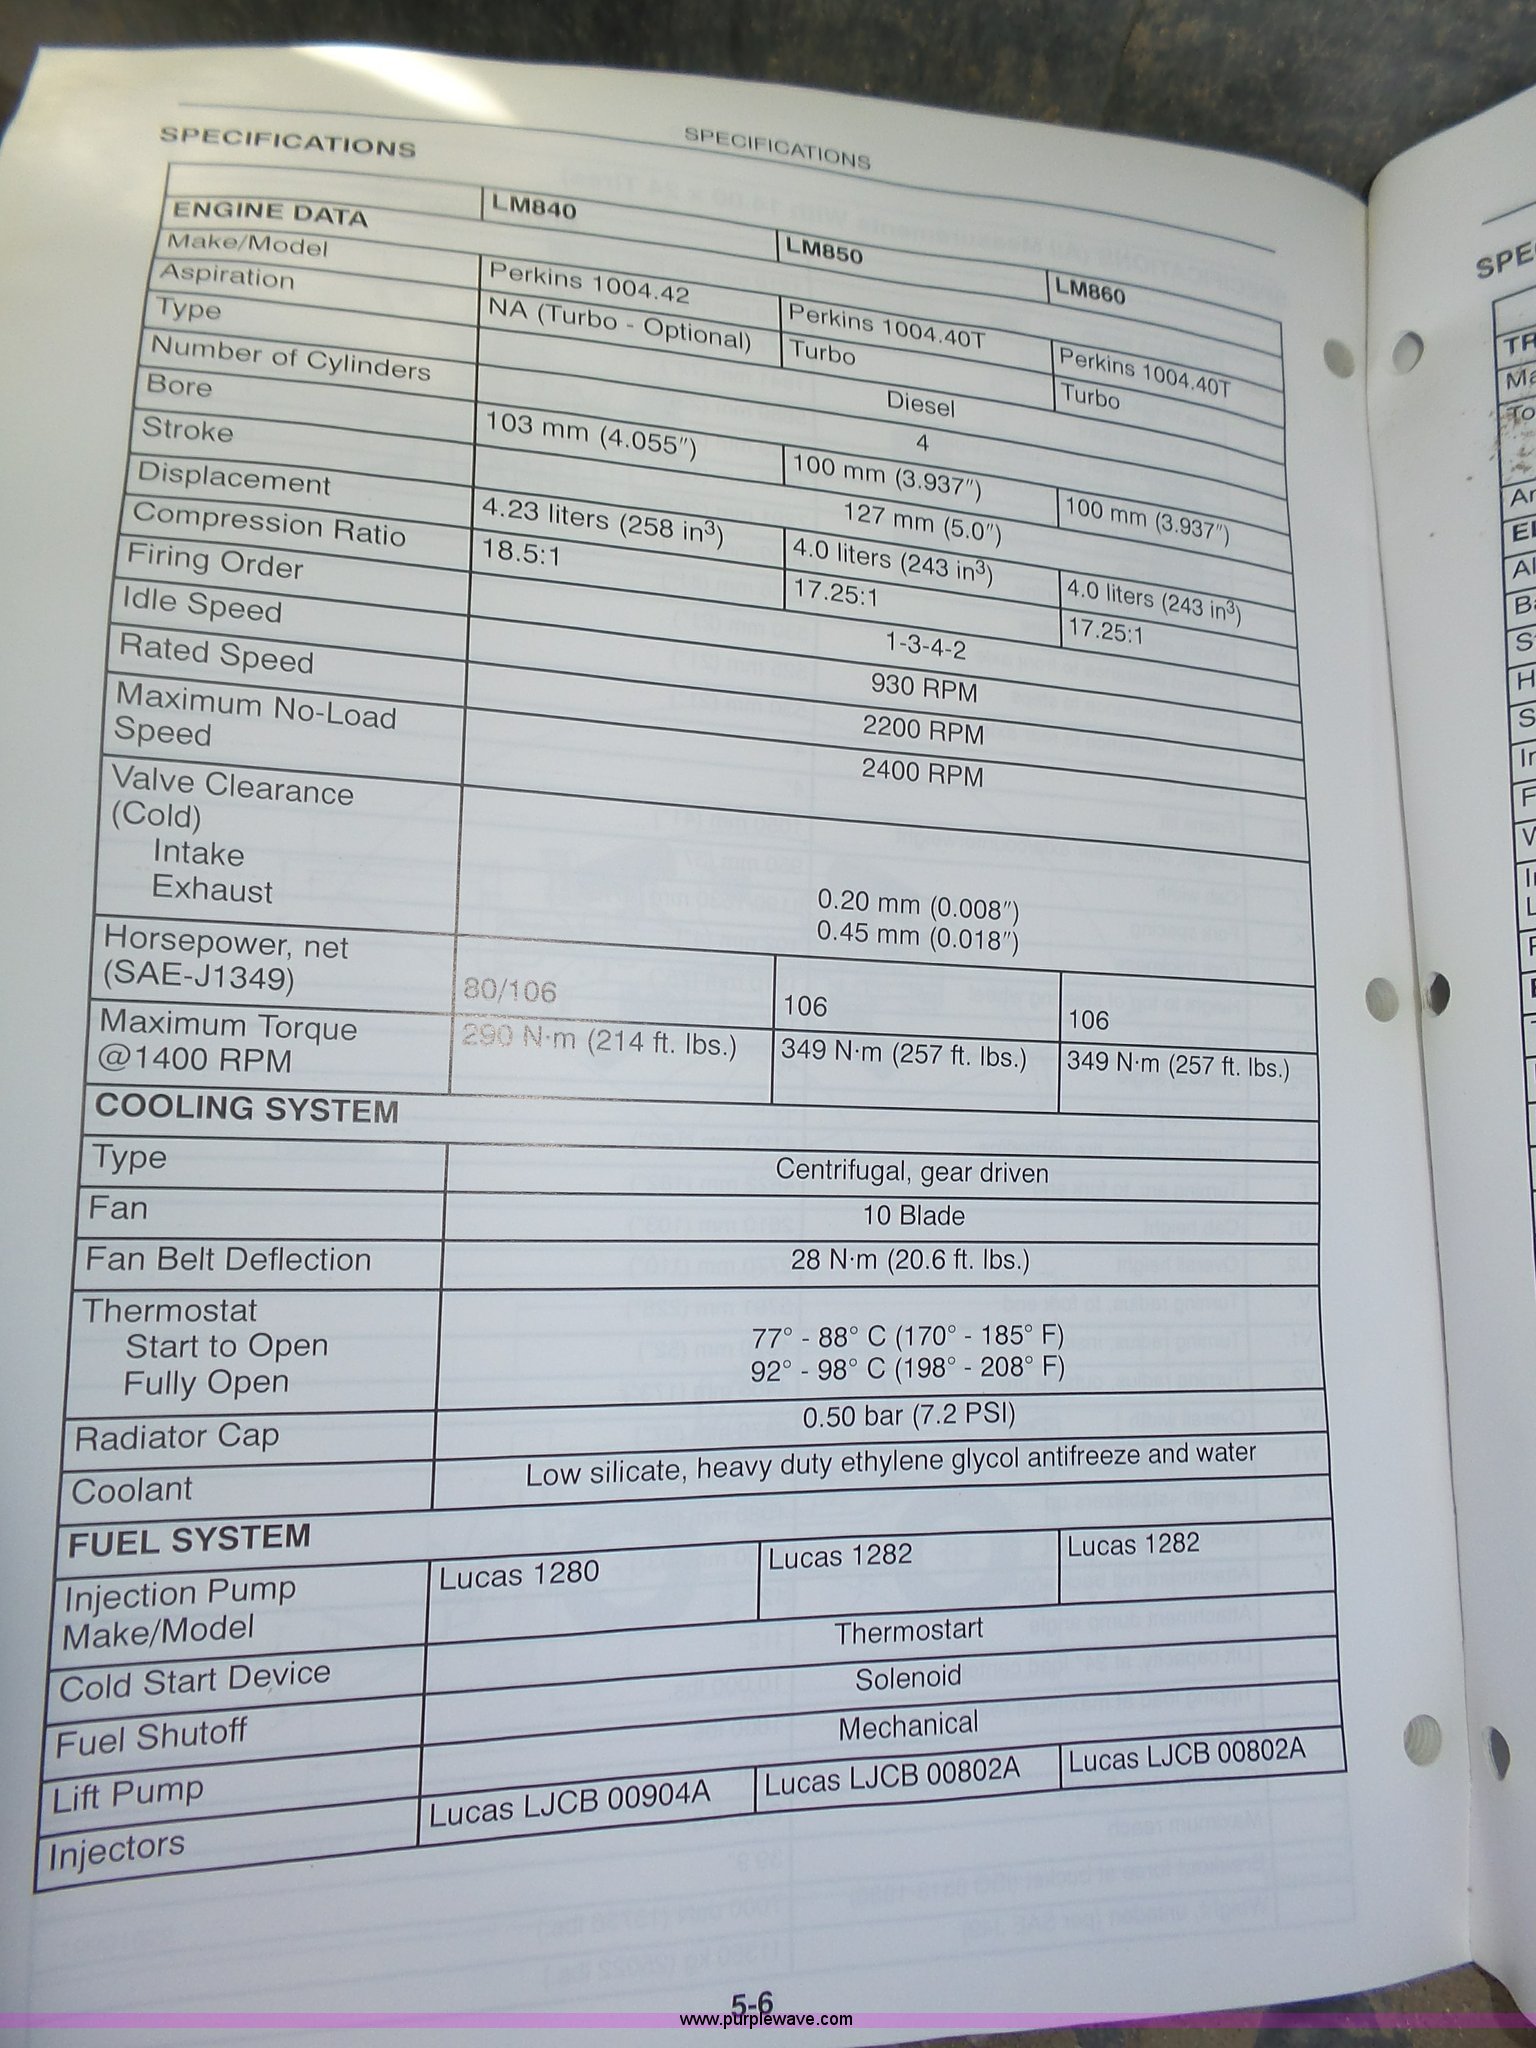 SPECIFICATIONS
SPECIFICATIONS
LM840 LM850 LM860
ENGINE DATA
Make/Model Perkins 1004.42 Perkins 1004.40T Perkins 1004.40T
Aspiration NA (Turbo - Optional) Turbo Turbo
Type Diesel
Number of Cylinders 4
Bore 103 mm (4.055″) 100 mm (3.937″) 100 mm (3.937″)
Stroke 127 mm (5.0″)
Displacement 4.23 liters (258 in³) 4.0 liters (243 in³) 4.0 liters (243 in³)
Compression Ratio 18.5:1 17.25:1 17.25:1
Firing Order 1-3-4-2
Idle Speed 930 RPM
Rated Speed 2200 RPM
Maximum No-Load
Speed 2400 RPM
Valve Clearance
(Cold)
Intake 0.20 mm (0.008″)
Exhaust 0.45 mm (0.018″)
Horsepower, net
(SAE-J1349) 80/106 106 106
Maximum Torque 290 N·m (214 ft. lbs.) 349 N·m (257 ft. lbs.) 349 N·m (257 ft. lbs.)
@1400 RPM
COOLING SYSTEM
Type Centrifugal, gear driven
Fan 10 Blade
Fan Belt Deflection 28 N·m (20.6 ft. lbs.)
Thermostat
Start to Open 77° - 88° C (170° - 185° F)
Fully Open 92° - 98° C (198° - 208° F)
Radiator Cap 0.50 bar (7.2 PSI)
Coolant Low silicate, heavy duty ethylene glycol antifreeze and water
FUEL SYSTEM
Injection Pump Lucas 1280 Lucas 1282 Lucas 1282
Make/Model
Cold Start Device Thermostart
Fuel Shutoff Solenoid
Lift Pump Mechanical
Injectors Lucas LJCB 00904A Lucas LJCB 00802A Lucas LJCB 00802A
5-6
www.purplewave.com